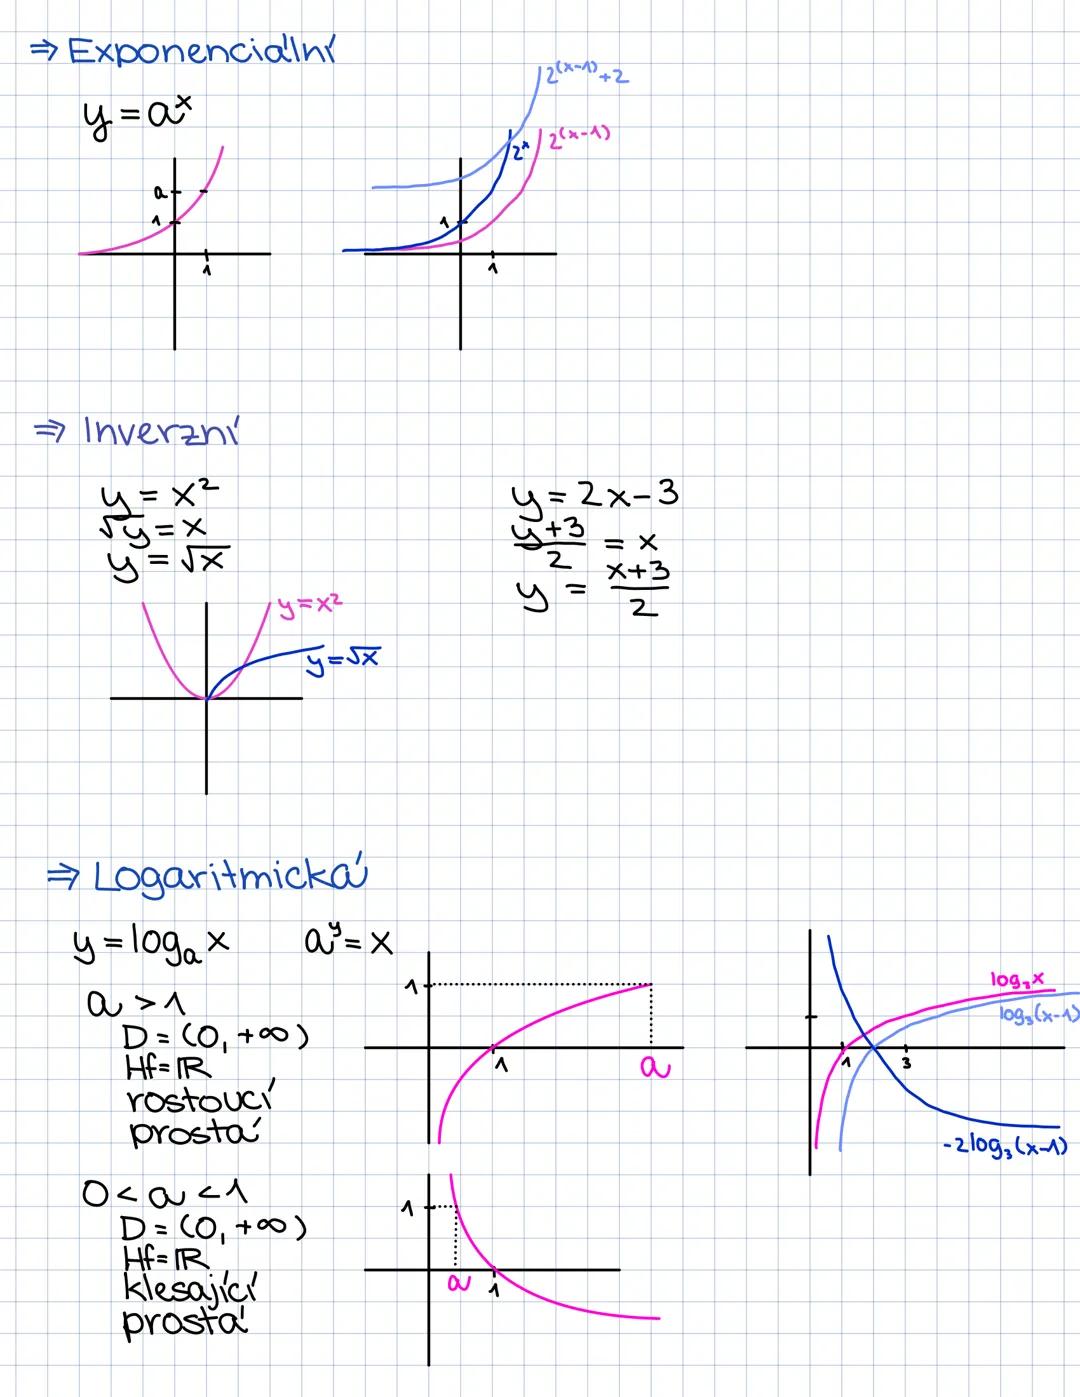 ⇒ Exponenciální
y = aˣ
a
1
1
2^(x-1) + 2
2^(x-1)
2ˣ
1
1
⇒ Inverzní
y = x²
√y = x
y = √x
y = x²
y = √x
y = 2x - 3
(y+3)/2 = x
y = (x+3)/2
⇒ Logaritmická
y = logₐ x    aʸ = x
a > 1
D = (0, +∞)
Hf = ℝ
rostoucí
prostá
1
1
a
log₃x
log₃(x-1)
1
3
-2log₃(x-1)
0 < a < 1
D = (0, +∞)
Hf = ℝ
klesající
prostá
1
a
1